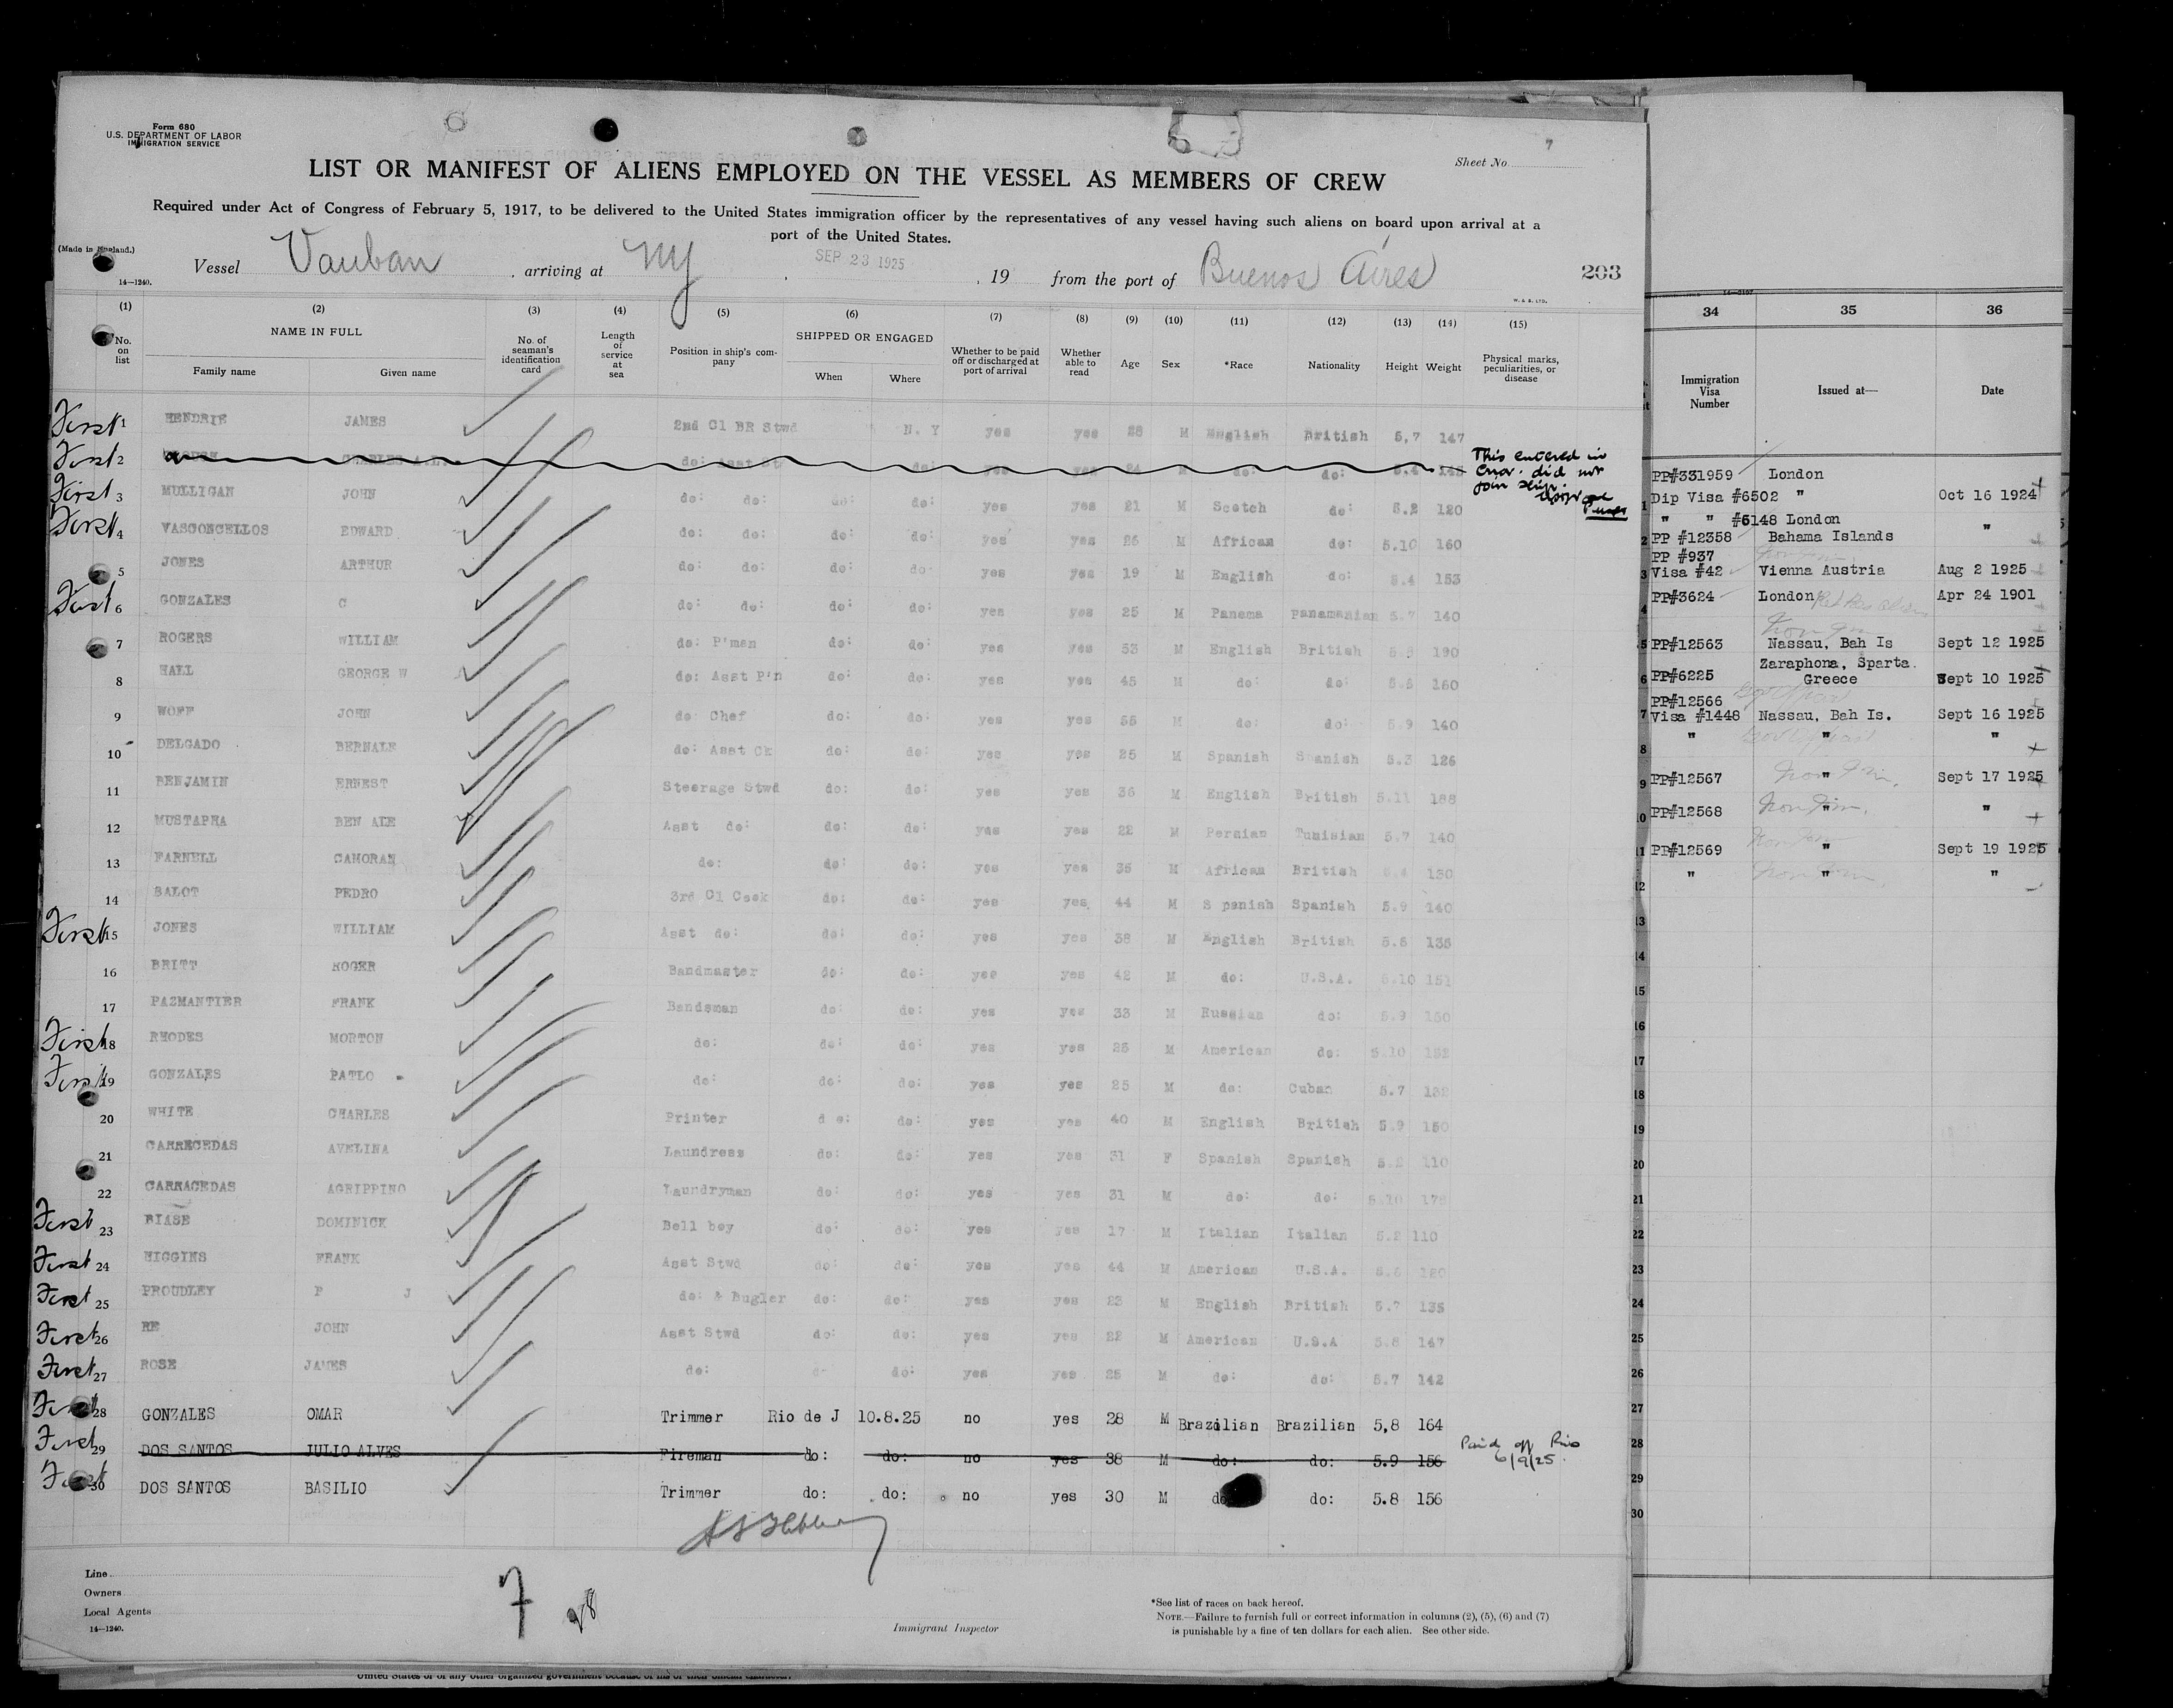 Form 680
U.S. DEPARTMENT OF LABOR
IMMIGRATION SERVICE
Sheet No. 7
LIST OR MANIFEST OF ALIENS EMPLOYED ON THE VESSEL AS MEMBERS OF CREW
Required under Act of Congress of February 5, 1917, to be delivered to the United States immigration officer by the representatives of any vessel having such aliens on board upon arrival at a
port of the United States.
(Made in England.)
Vessel Vauban , arriving at NY , SEP 23 1925 , 19 from the port of Buenos Aires 203
14—1240.
W. & S. LTD.
(1) (2) (3) (4) (5) (6) (7) (8) (9) (10) (11) (12) (13) (14) (15)
No. on list NAME IN FULL Family name Given name No. of seaman's identification card Length of service at sea Position in ship's company SHIPPED OR ENGAGED When Where Whether to be paid off or discharged at port of arrival Whether able to read Age Sex *Race Nationality Height Weight Physical marks, peculiarities, or disease
First 1 HENDRIE JAMES 2nd Cl BR Stwd N. Y yes yes 28 M English British 5,7 147
First 2 do: Asst do: yes 24 do: do: 5.4
This entered in
Error. did not
join ship.
Purser
First 3 MULLIGAN JOHN do: do: do: do: yes yes 21 M Scotch do: 5.2 120
First 4 VASCONCELLOS EDWARD do: do: do: do: yes yes 26 M African do: 5.10 160
5 JONES ARTHUR do: do: do: do: yes yes 19 M English do: 5.4 153
First 6 GONZALES C do: do: do: do: yes yes 25 M Panama Panamanian 5.7 140
7 ROGERS WILLIAM do: P'man do: do: yes yes 53 M English British 190
8 HALL GEORGE W do: Asst P'n do: do: yes yes 45 M do: do: 160
9 WOFF JOHN do: Chef do: do: yes yes 55 M do: do: 5.9 140
10 DELGADO BERNALE do: Asst Ck do: do: yes yes 25 M Spanish Spanish 5.3 126
11 BENJAMIN ERNEST Steerage Stwd do: do: yes yes 36 M English British 5.11 188
12 MUSTAPHA BEN ALE Asst do: do: do: yes yes 22 M Persian Tunisian 5.7 140
13 FARNELL CAMORAN do: do: do: yes yes 35 M African British 5.4 130
14 SALOT PEDRO 3rd Cl Cook do: do: yes yes. 44 M S panish Spanish 5.9 140
First 15 JONES WILLIAM Asst do: do: do: yes yes 38 M English British 5.6 135
16 BRITT ROGER Bandmaster do: do: yes yes 42 M do: U.S.A. 5.10 151
17 PAZMANTIER FRANK Bandsman do: do: yes yes 33 M Russian do: 5.9 150
First 18 RHODES MORTON do: do: do: yes yes 23 M American do: 5.10 152
First 19 GONZALES PATLO do: do: do: yes yes 25 M do: Cuban 5.7 132
20 WHITE CHARLES Printer d o: do: yes yes 40 M English British 5.9 150
21 CARRECEDAS AVELINA Laundress do: do: yes yes 31 F Spanish Spanish 5.2 110
22 CARRACEDAS AGRIPPINO Laundryman do: do: yes yes 31 M do: do: 5.10 178
First 23 BIASE DOMINICK Bell boy do: do: yes yes 17 M Italian Italian 5.2 110
First 24 HIGGINS FRANK Asst Stwd do: do: yes yes 44 M American U.S.A. 5.6 120
First 25 PROUDLEY P J do: & Bugler do: do: yes yes 23 M English British 5.7 135
First 26 RE JOHN Asst Stwd do: do: yes yes 22 M American U.S.A 5.8 147
First 27 ROSE JAMES do: do: yes yes 25 M do: do: 5.7 142
First 28 GONZALES OMAR Trimmer Rio de J 10.8.25 no yes 28 M Brazilian Brazilian 5,8 164
First 29 DOS SANTOS JULIO ALVES Fireman do: do: no yes 38 M do: do: 5.9 156 Paid off Rio
6/9/25.
First 30 DOS SANTOS BASILIO Trimmer do: do: no yes 30 M do: 5.8 156
Line
Owners
Local Agents
14—1240.
7 28
Immigrant Inspector
*See list of races on back hereof.
NOTE.—Failure to furnish full or correct information in columns (2), (5), (6) and (7)
is punishable by a fine of ten dollars for each alien. See other side.
34 35 36
Immigration Visa Number Issued at— Date
PP#331959 London
1 Dip Visa #6502 " Oct 16 1924
" " #6148 London "
2 PP #12358 Bahama Islands
PP #937
3 Visa #42 Vienna Austria Aug 2 1925
4 PP#3624 London Apr 24 1901
5 PP#12563 Nassau, Bah Is Sept 12 1925
Zaraphona, Sparta.
6 PP#6225 Greece Sept 10 1925
PP#12566
7 Visa #1448 Nassau, Bah Is. Sept 16 1925
8 " " "
9 PP#12567 " Sept 17 1925
10 PP#12568 " "
11 PP#12569 " Sept 19 1925
12 " " "
13
14
15
16
17
18
19
20
21
22
23
24
25
26
27
28
29
30